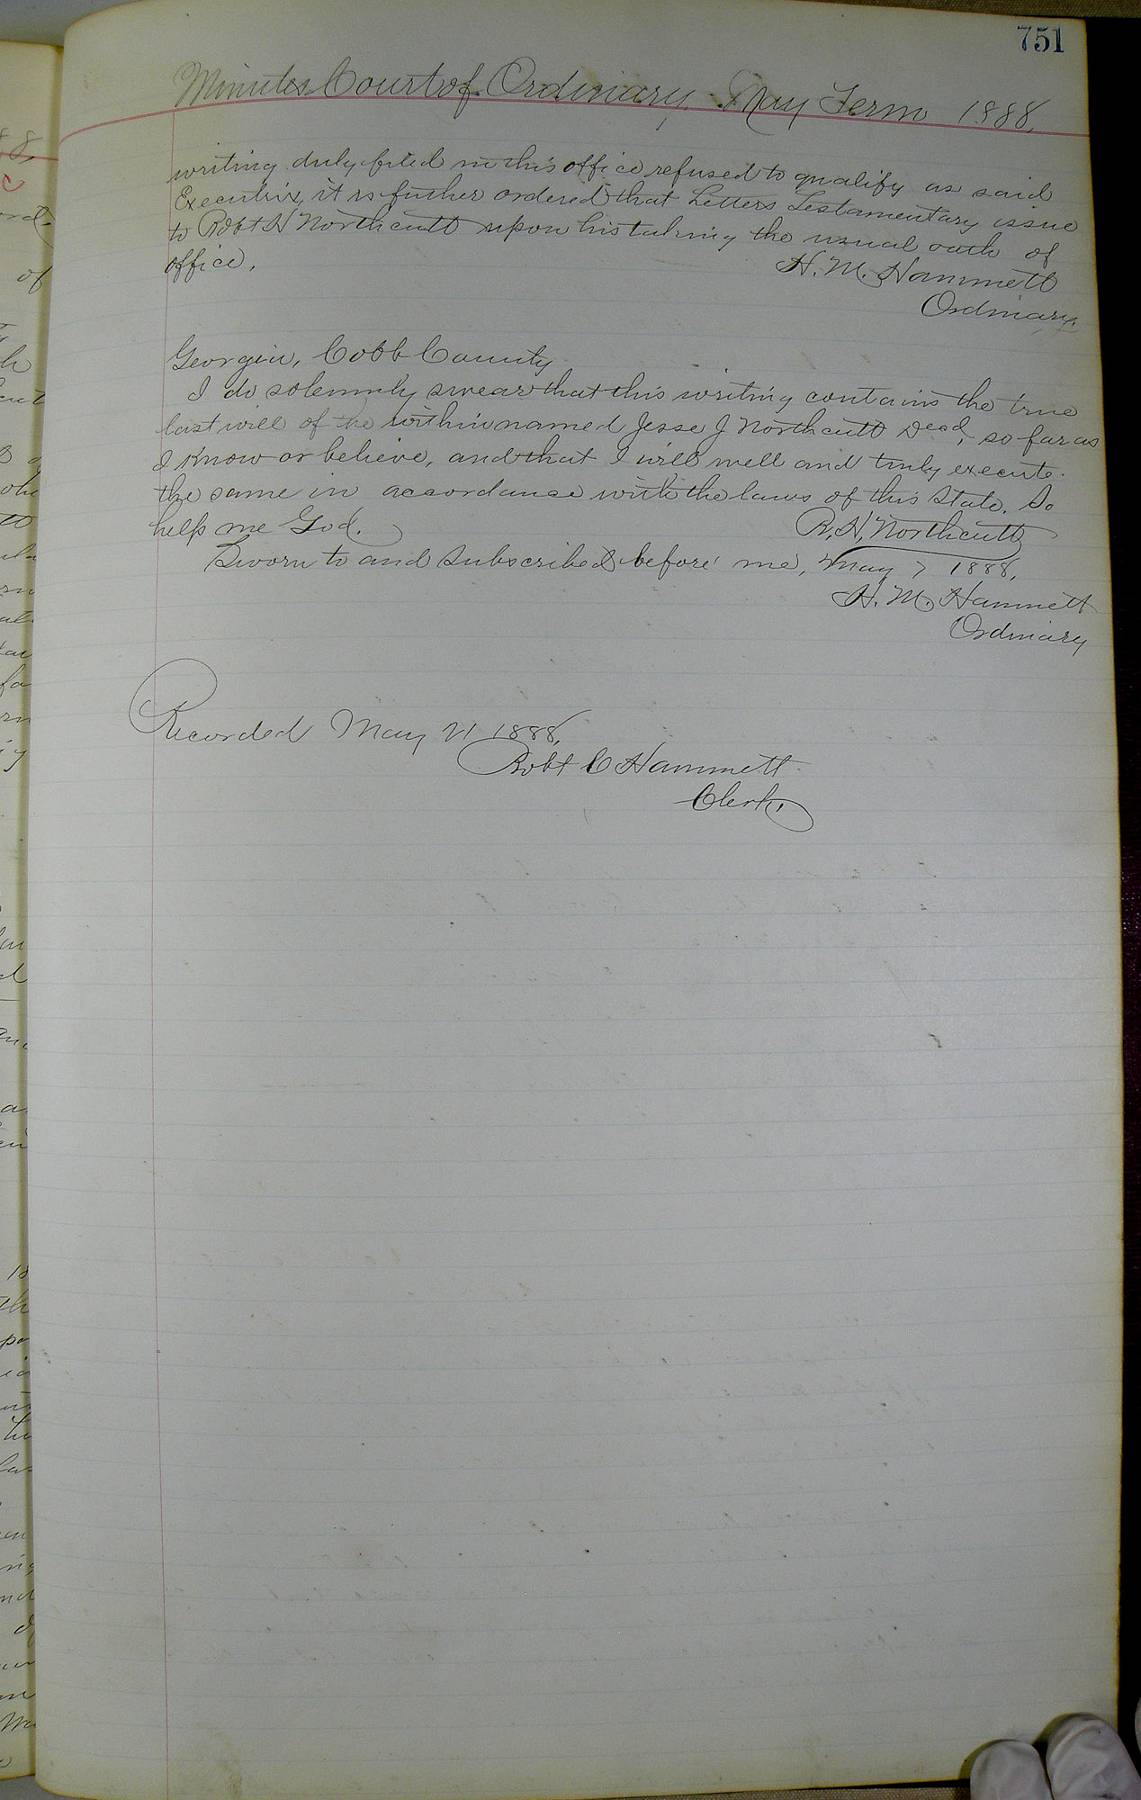 751
Minutes Court of Ordinary, May Term 1888,
writing duly filed in this office refused to qualify as said
Executrix, it is further ordered that Letters Testamentary issue
to Robt H Northcutt upon his taking the usual oath of
office.
H. M. Hammett
Ordinary.
Georgia, Cobb County
I do solemnly swear that this writing contains the true
last will of the within named Jesse J Northcutt Dead, so far as
I know or believe, and that I will well and truly execute
the same in accordance with the laws of this State. So
help me God.
R. H. Northcutt
Sworn to and subscribed before me, May 7 1888,
H. M. Hammett
Ordinary
Recorded May 21 1888,
Robt C Hammett
Clerk,